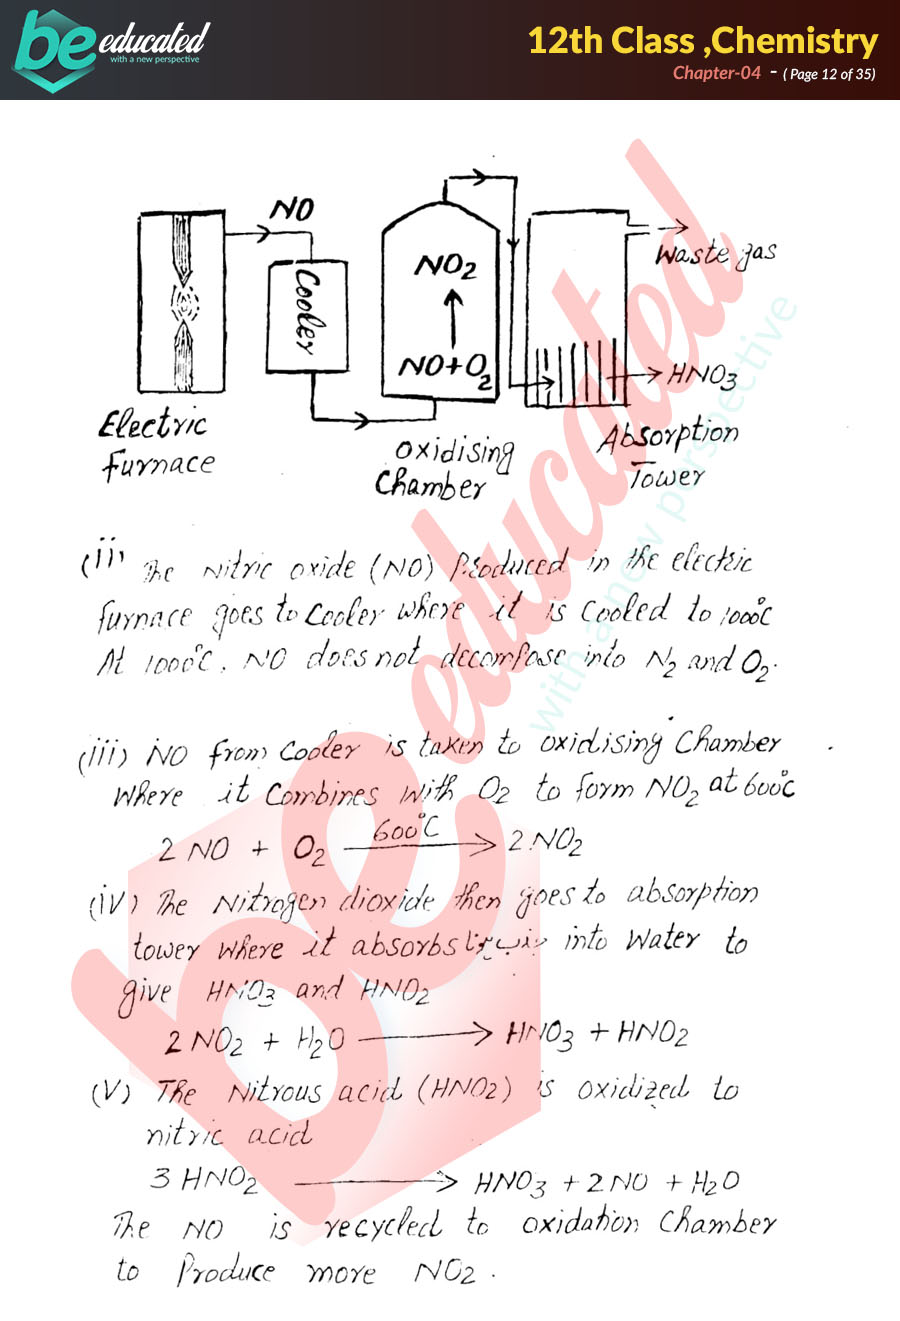 be educated
with a new perspective
12th Class ,Chemistry
Chapter-04 - ( Page 12 of 35)
NO
Waste gas
Cooler
NO2
NO+O2
HNO3
Electric
Furnace
Oxidising
Chamber
Absorption
Tower
(ii) The Nitric oxide (NO) Produced in the electric
furnace goes to Cooler where it is Cooled to 1000°C
At 1000°C, NO does not decompose into N2 and O2.
(iii) NO from Cooler is taken to oxidising Chamber
Where it Combines with O2 to form NO2 at 600°C
2 NO + O2 600°C → 2 NO2
(iv) The Nitrogen dioxide then goes to absorption
tower where it absorbs into Water to
give HNO3 and HNO2
2 NO2 + H2O → HNO3 + HNO2
(V) The Nitrous acid (HNO2) is oxidized to
nitric acid
3 HNO2 → HNO3 + 2 NO + H2O
The NO is recycled to oxidation Chamber
to Produce more NO2.
be educated
with a new perspective